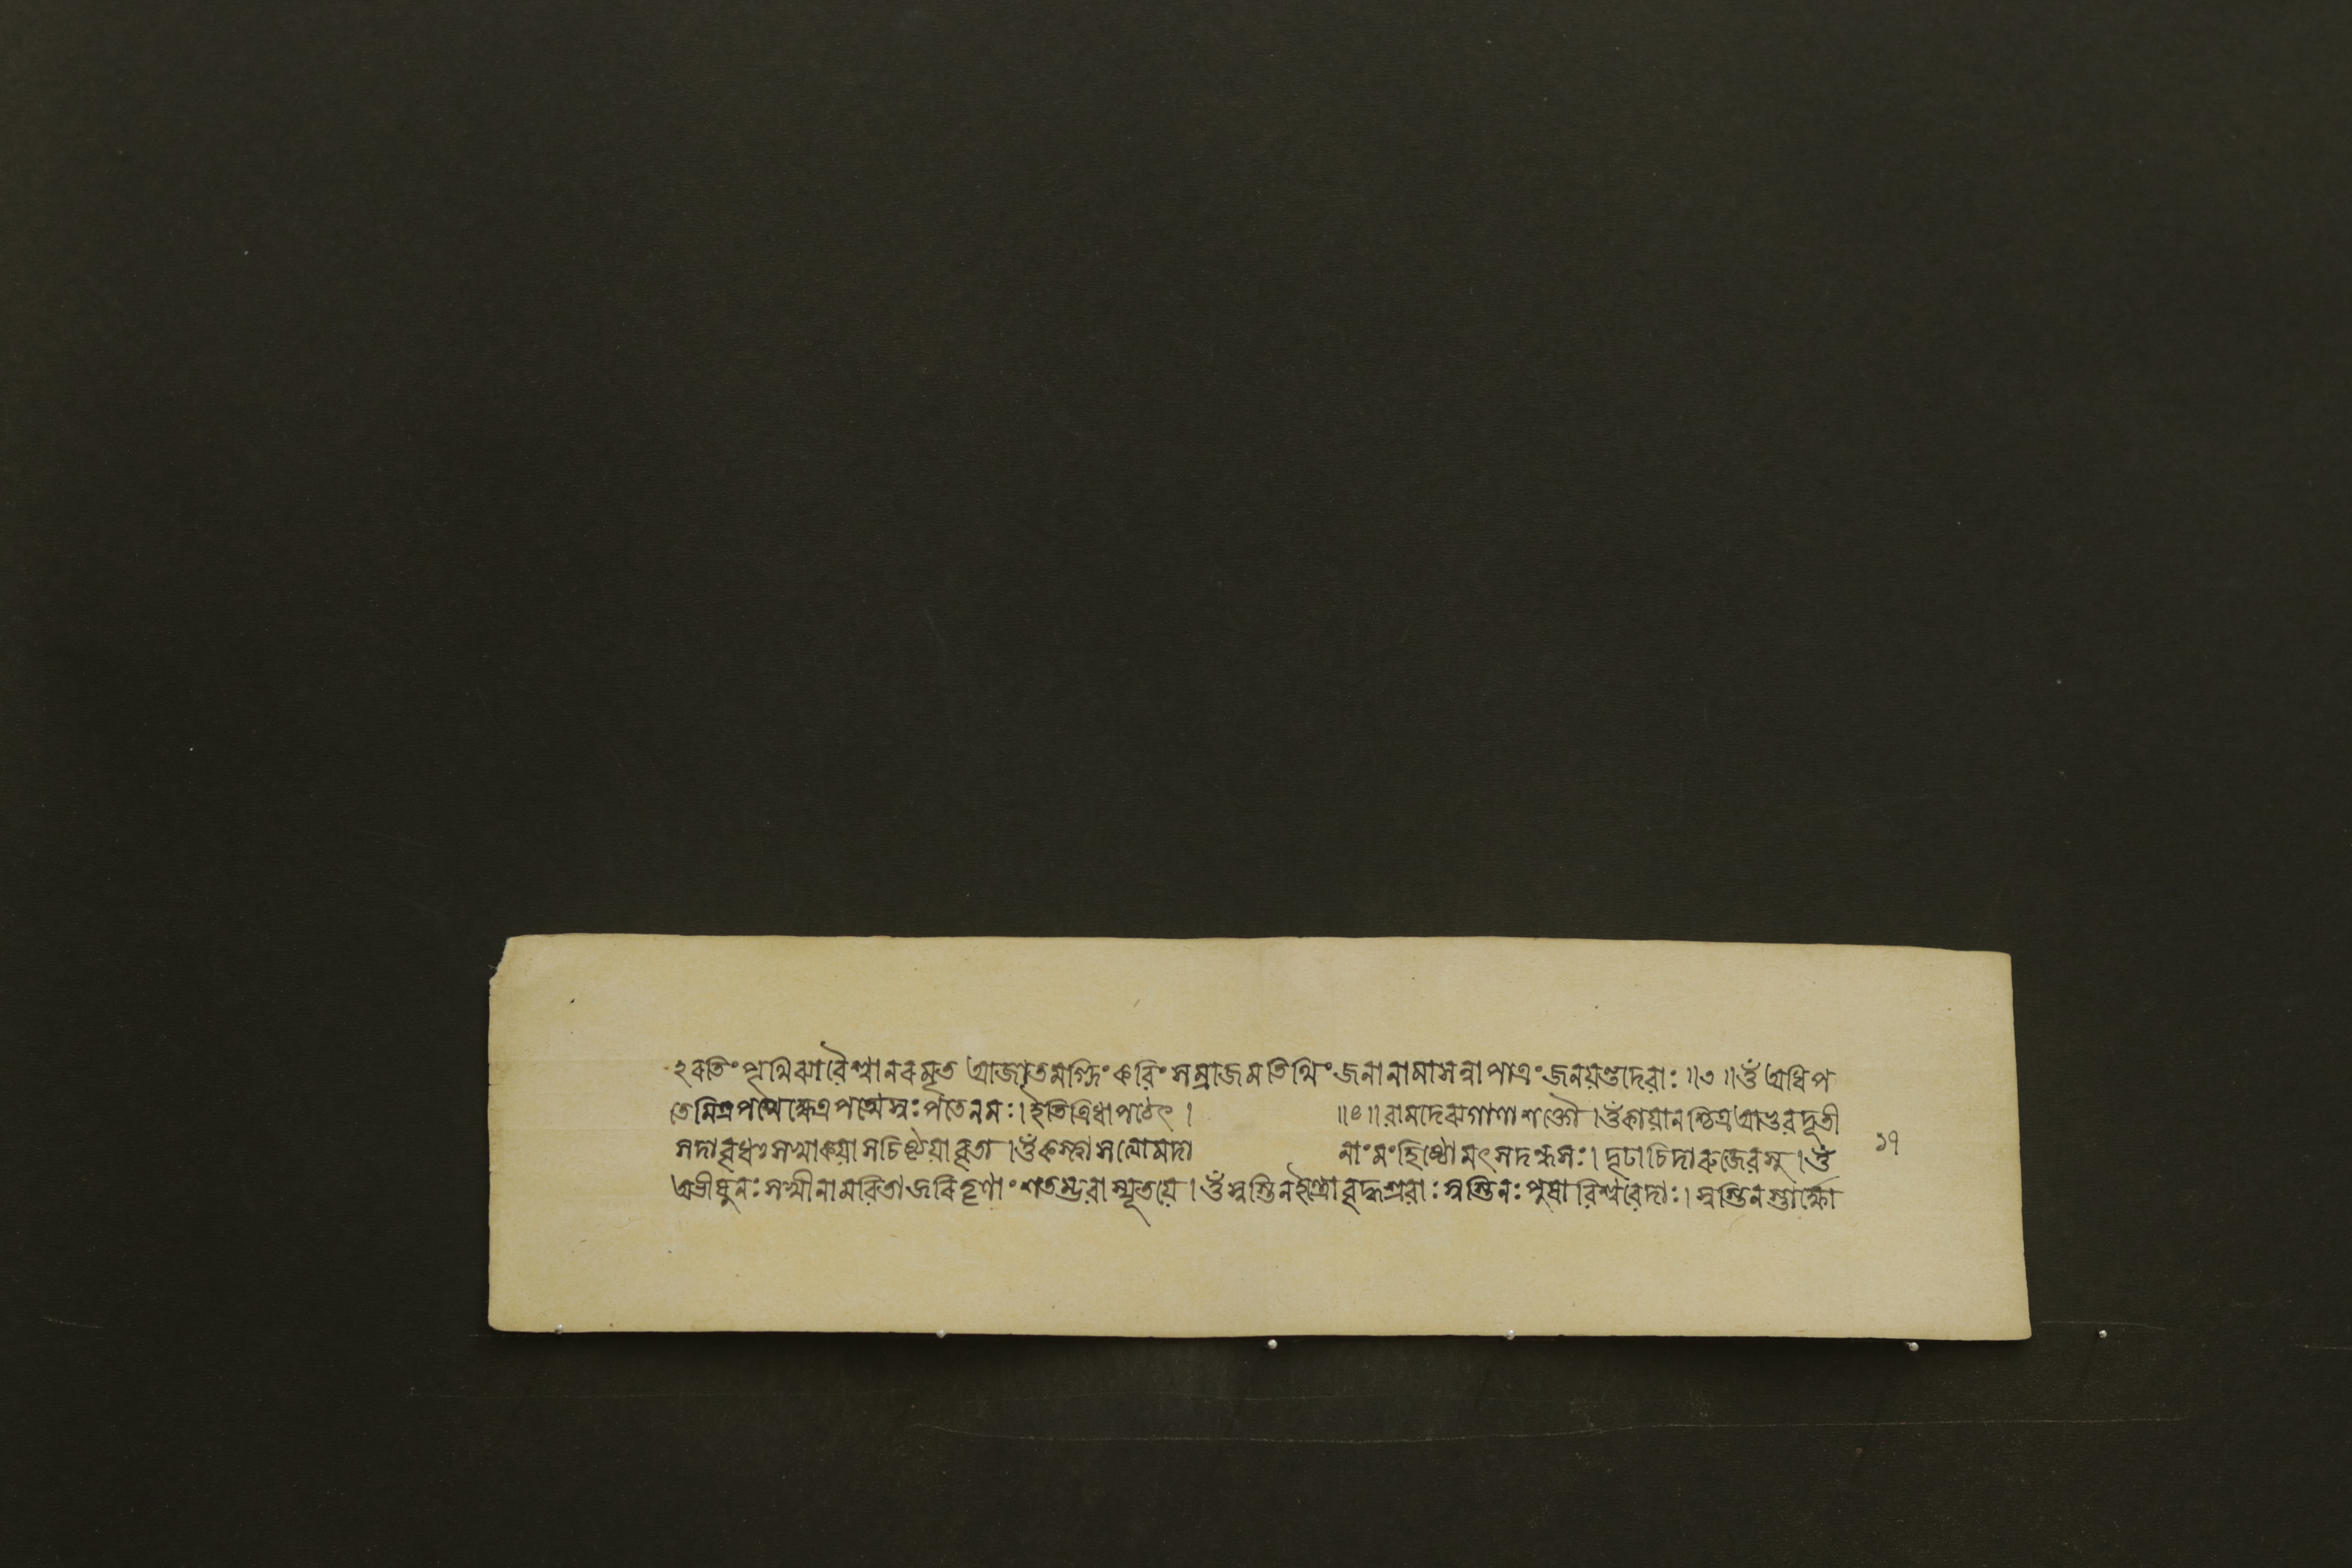 ঽবতিং পৃথিব্যাবৈশ্বানবমৃত আজাতমগ্নিং কবিং সম্রাজমতিথিং জনানামাসন্না পাত্রং জনয়ন্তদেবাঃ ॥৩॥ ওঁ অধিপ
তেমিত্রপতেক্ষেত্রপতেস্বঃপতেনমঃ। ইতিত্রিধা পঠেৎ। ॥৪॥ বামদেব্যগাণাশক্তৌ। ওঁ কায়ানশ্চিত্র আভুবদূতী
সদাবৃধঃ সখা কয়াসচিষ্ঠয়াবৃতা। ওঁ কস্ত্বাসত্যোমদা নাং মংহিষ্ঠোমৎসদন্ধসঃ। দৃঢাচিদারুজেবসু। ওঁ
অভীষুনঃ সখীনামবিতাজবিতৃণাং শতম্ভবাস্যূতয়ে। ওঁ স্বস্তিনইন্দ্রোবৃদ্ধশ্রবাঃ স্বস্তিনঃ পুষাবিশ্ববেদাঃ। স্বস্তিনস্তার্ক্ষো
১৭